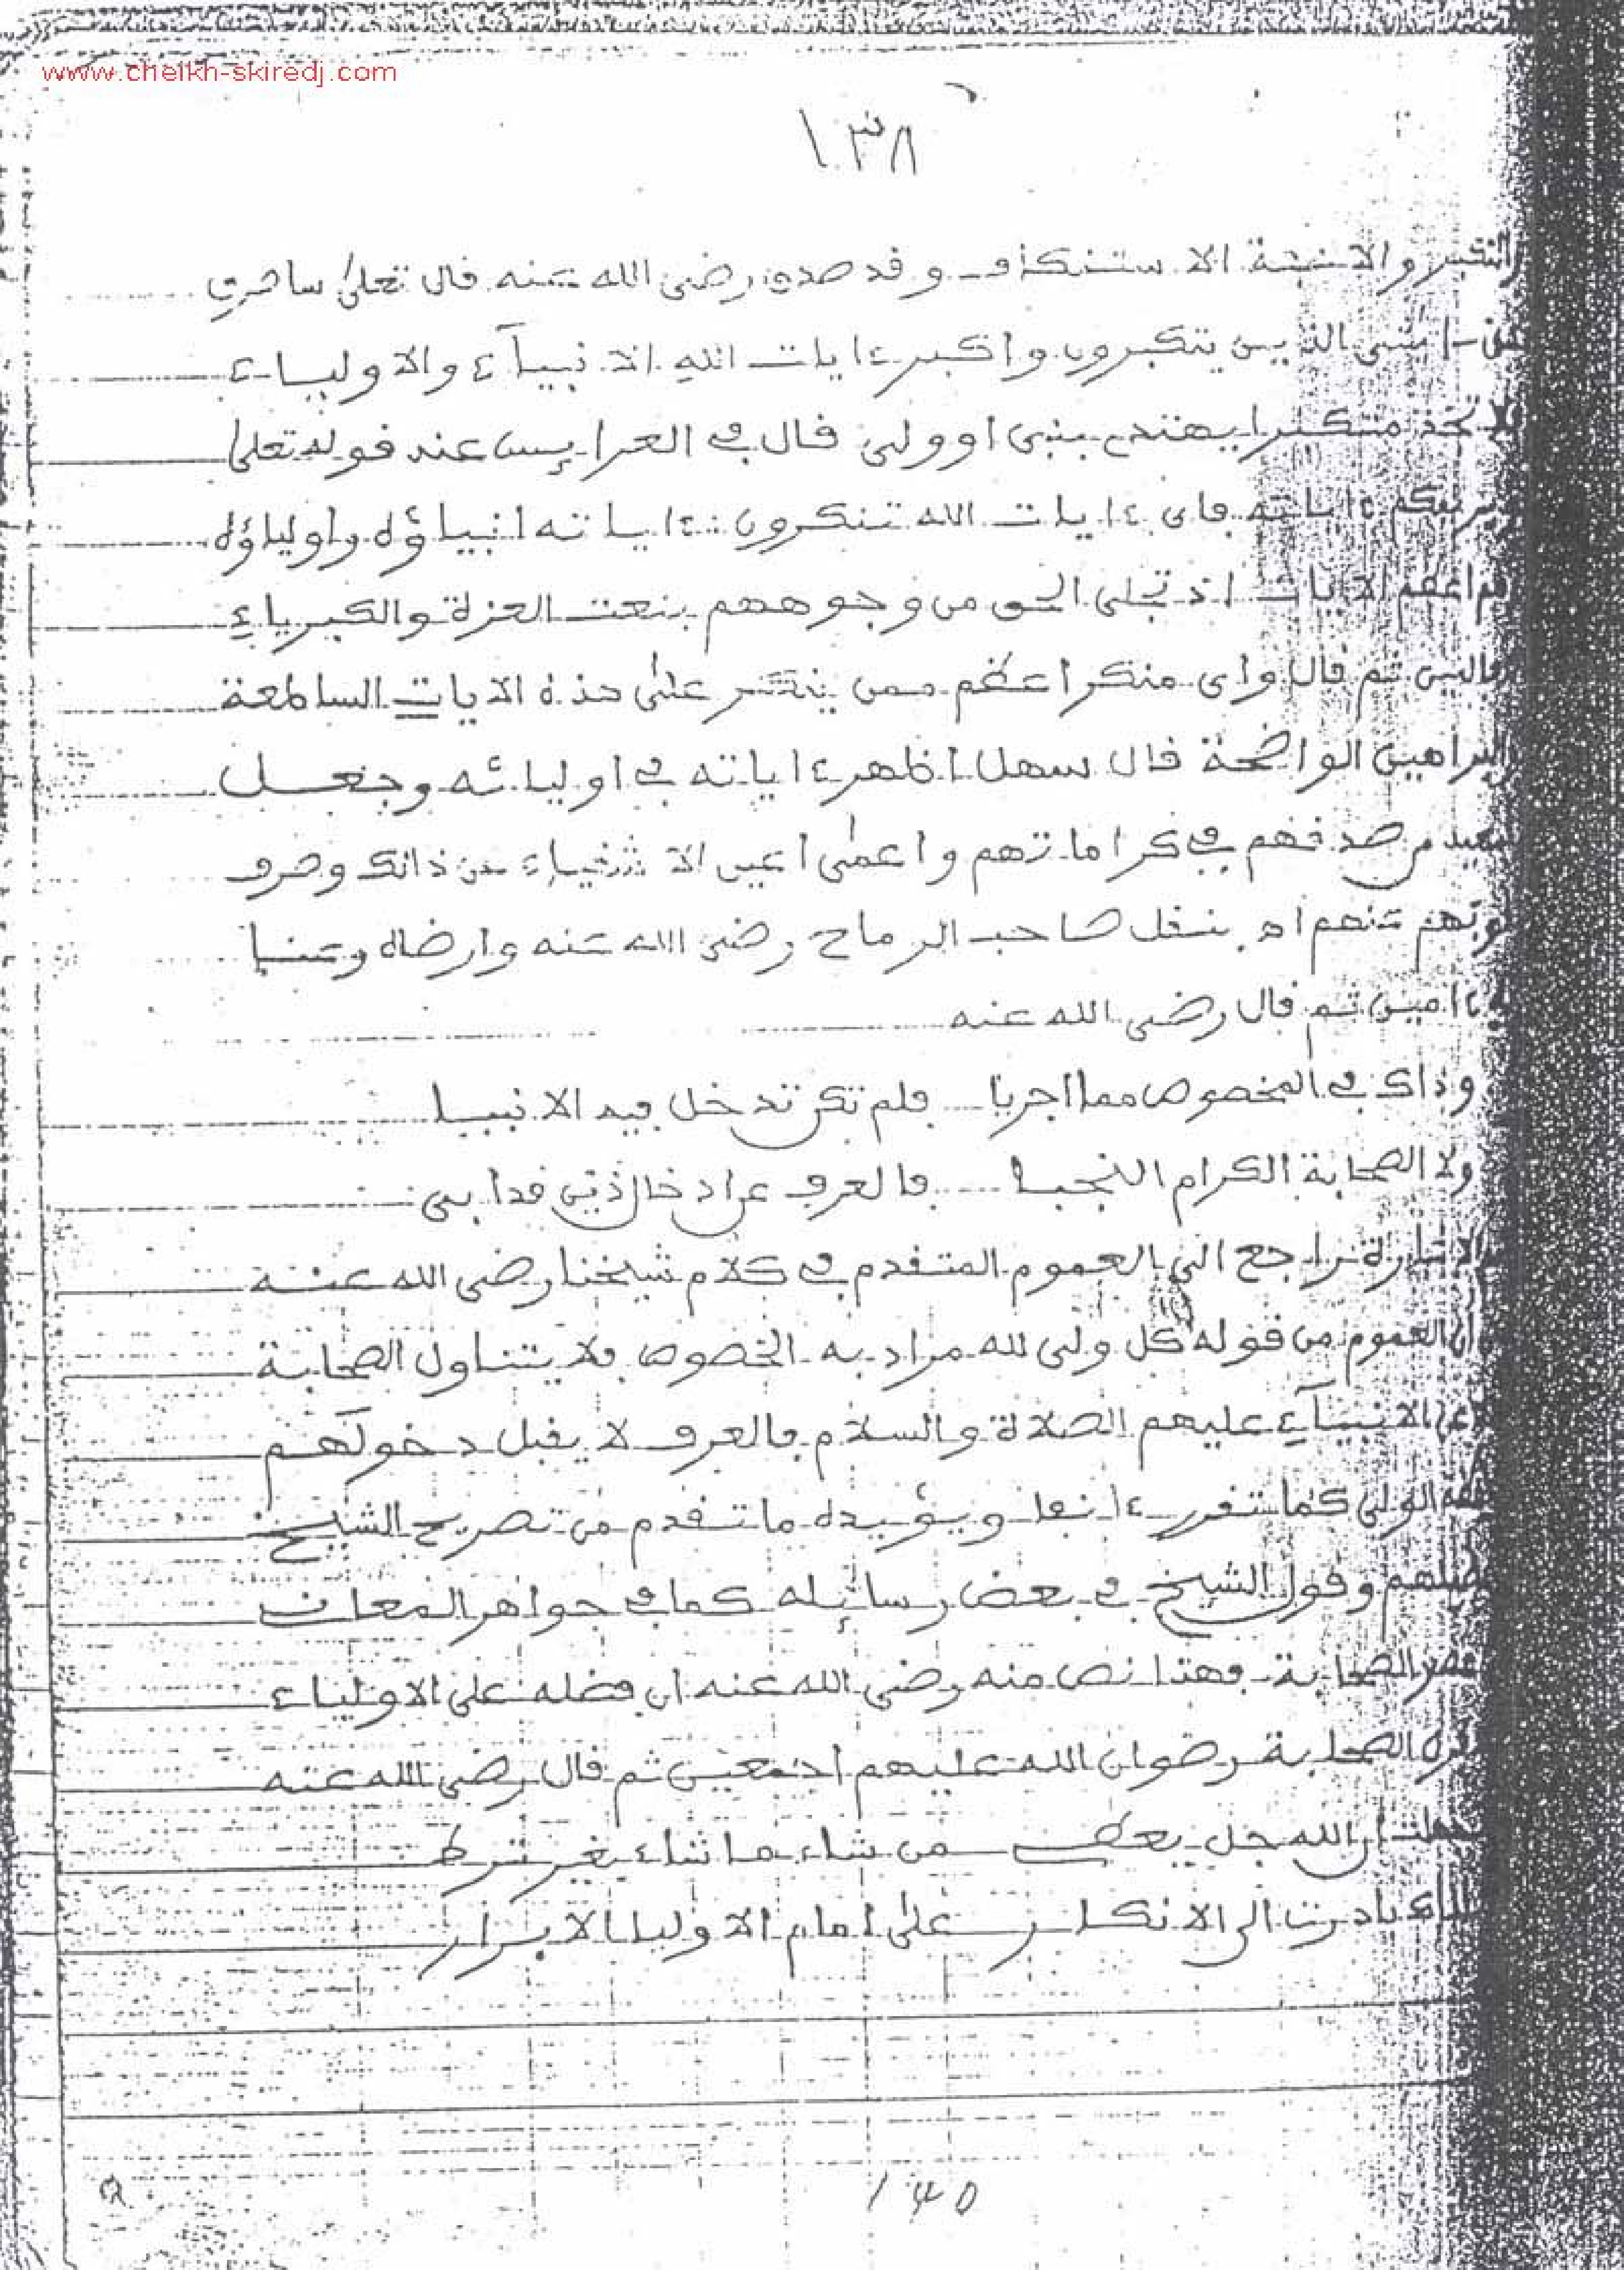 www.cheikh-skiredj.com
١٣٨
التكبر والانفة الاستنكاف وقد صدق رضي الله عنه قال تعلى ساصرف
عن ءايتي الذين يتكبرون واكبر ءايات الله الانبيآء والاولياء
فلا تجد متكبرا يهتدى بنبي او ولي قال في العرايس عند قوله تعلى
ويريكم ءاياته فاي ءايات الله تنكرون ءاياته انبياؤه واولياؤه
اعظم الايات اذ تجلى الحق من وجوههم بنعت العزة والكبرياء
ثم قال واي منكر اعظم ممن ينكر على هذه الايات الساطعة
والبراهين الواضحة قال سهل اظهر ءاياته في اوليائه وجعل
صدقهم في كراماتهم واعمى اعين الاشقياء عن ذالك وصرف
قلوبهم عنهم اهـ بنقل صاحب الرماح رضي الله عنه وارضاه وعنا
به ءامين ثم قال رضي الله عنه
وذاك في المخصوص مما اجريا فلم تكن تدخل فيه الانبيا
ولا الصحابة الكرام النجبا فالعرف عن ادخال ذين قد ابى
الاشارة راجع الى العموم المتقدم في كلام شيخنا رضي الله عنه
وان العموم من قوله كل ولي لله مراد به الخصوص فلا يتناول الصحابة
الانبيآء عليهم الصلاة والسلام فالعرف لا يقبل دخولهم
الولي كما تقرر ءانفا ويؤيده ما تقدم من تصريح الشيخ
وقول الشيخ في بعض رسائله كما في جواهر المعاني
الصحابة فهذا نص منه رضي الله عنه ان فضله على الاولياء
الصحابة رضوان الله عليهم اجمعين ثم قال رضي الله عنه
ان الله جل يعطي من شاء ما شاء بغير شرط
بادرت الى الانكار على امام الاوليا الابرار
140